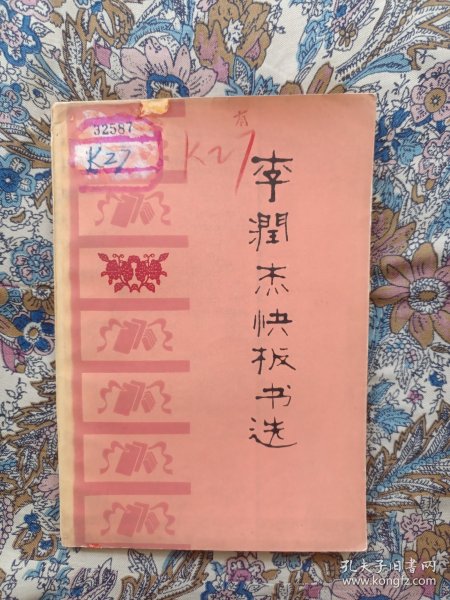 32587
K27
K27
李潤杰快板书选
孔夫子旧书网
www.kongfz.com